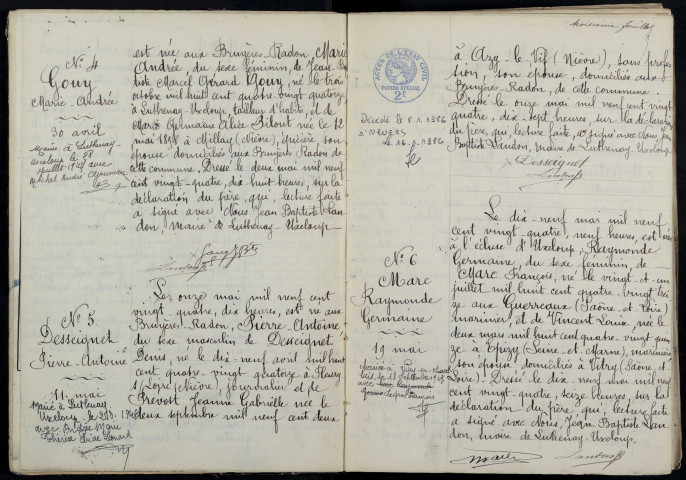 N° 4
Gouy
Marie-Andrée
30 avril
est née aux Bruyères-Radon, Marie
Andrée, du sexe féminin, de Jean-Bap
tiste Marcel Gérard Gouy, né le trois
octobre mil huit cent quatre-vingt quatorze
à Luthenay-Uxeloup tailleur d'habits, et de
Marie Germaine Alice Pilout née le 12
mai 1898 à Millay (Nièvre), épicière son
épouse domiciliés aux Bruyères Radon de
cette commune. Dressé le deux mai mil neuf
cent vingt-quatre, dix huit heures, sur la
déclaration du père, qui, lecture faite
a signé avec Nous Jean Baptiste Lan
don, maire de Luthenay-Uxeloup
N° 5
Desseignet
Pierre-Antoine
11 mai
Marié à Luthenay
Uxeloup le
avec Andrée Marie
Le onze mai mil neuf cent
vingt-quatre, dix heures, est né aux
Bruyères-Radon, Pierre-Antoine
du sexe masculin de Desseignet
Denis, né le dix-neuf avril mil huit
cent quatre-vingt quatorze à Fleury
s/Loire (Nièvre), journalier et de
Prévost Jeanne Gabrielle née le
deux septembre mil neuf cent deux
Troisième feuillet
ACTES DE L'ÉTAT CIVIL
PAPIER SPÉCIAL
2F
Décédé le 8.1.1986
à NEVERS
Le 16.1.1986
à Azy-le-Vif (Nièvre), sans profes
sion, son épouse, domiciliés aux
Bruyères-Radon, de cette commune.
Dressé le onze mai mil neuf cent vingt
quatre, dix-sept heures, sur la déclaration
du père, qui, lecture faite, a signé avec Nous, Jean
Baptiste Landon, maire de Luthenay-Uxeloup.
Desseignet
N° 6
Marc
Raymonde
Germaine
19 mai
Le dix-neuf mai mil neuf
cent vingt-quatre, neuf heures, est née
à l'écluse d'Uxeloup, Raymonde
Germaine, du sexe féminin, de
Marc François, né le vingt-et-un
juillet mil huit cent quatre-vingt trei
ze aux Guerreaux (Saône-et-Loire)
marinier, et de Vincent Louise née le
deux mars mil huit cent quatre-vingt quin
ze à Épizy (Seine-et-Marne), marinière
son épouse domiciliés à Vitry (Saône-et
Loire). Dressé le dix-neuf mai mil neuf
cent vingt-quatre, seize heures, sur la
déclaration du père, qui, lecture faite
a signé avec Nous, Jean Baptiste Lan
don, maire de Luthenay-Uxeloup.
Marc